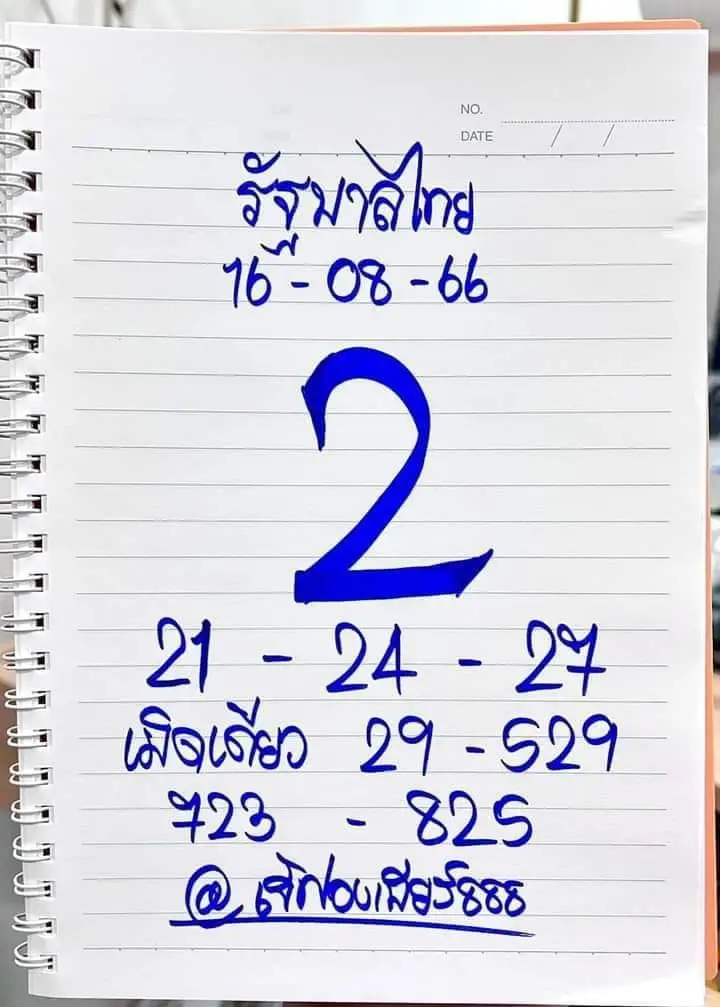 NO.
DATE / /
รัฐบาลไทย
16 - 08 - 66
2
21 - 24 - 27
เม็ดเดียว 29 - 529
723 - 825